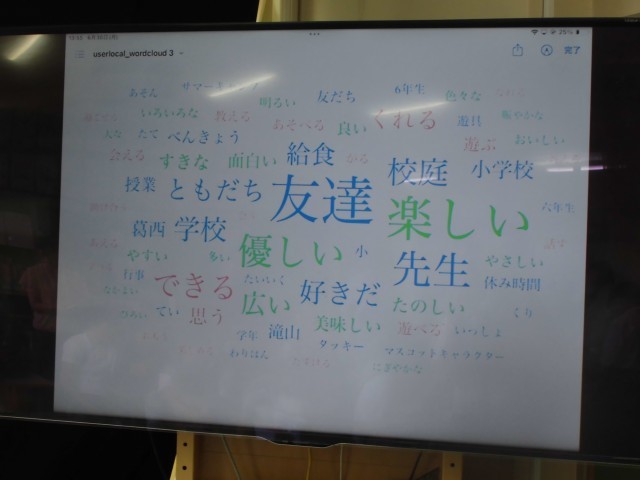 userlocal_wordcloud 3
完了
あそん サマーキャンプ 明るい 友だち 6年生 色々な
いろいろな 教える あそべる 良い くれる 遊具 賑やかな
大な たて べんきょう 遊ぶ おいしい
会える すきな 面白い 給食 校庭 小学校
授業 ともだち 友達 楽しい 六年生
葛西 学校 優しい 小 話す
やすい 多い 先生 やさしい
行事 できる たいいく 好きだ 休み時間
なかよい 広い たのしい
てい 思う 美味しい 遊べる いっしょ くり
学年 滝山 タッキー マスコットキャラクター
わりはん にぎやかな